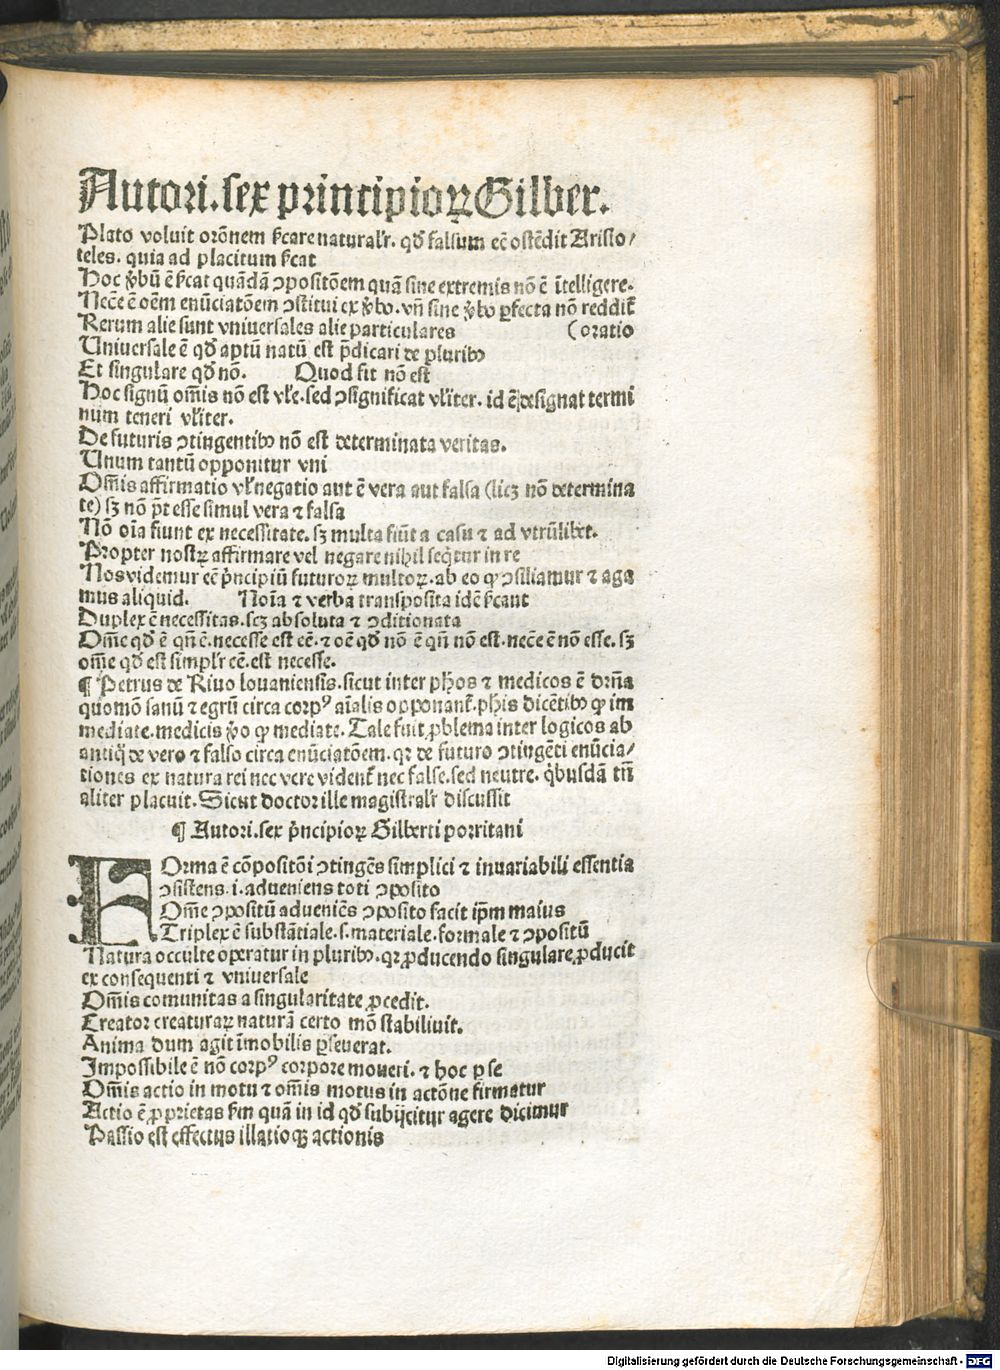 Autori.sex principioꝝ Gilber.
Plato voluit orōnem ſicare naturalr̄. qd̄ falsum eē ostēdit Aristo/
teles. quia ad placitum ſicat
Hoc v̄bū ē ſicat quādā ꝯpositōem quā sine extremis nō ē ītelligere.
Necē ē oēm enūciatōem ꝯstitui ex v̄bo. vn̄ sine v̄bo ꝑfecta nō reddit̄
Rerum alie sunt vniuersales alie particulares (oratio
Uniuersale ē qd̄ aptū natū est p̄dicari de pluribꝰ
Et singulare qd̄ nō. Quod fit nō est
Hoc signū om̄is nō est vl̄e. sed ꝯsignificat vl̄iter. id ē designat termi
num teneri vl̄iter.
De futuris ꝯtingentibꝰ nō est determinata veritas.
Unum tantū opponitur vni
Om̄is affirmatio vl̄ negatio aut ē vera aut falsa (licꝫ nō determina
te) sꝫ nō p̄t esse simul vera ⁊ falsa
Nō oīa fiunt ex necessitate. sꝫ multa fiūt a casu ⁊ ad vtrūlibet.
Propter nostꝝ affirmare vel negare nihil seq̄tur in re
Nos videmur eē p̄ncipiū futuroꝝ multoꝝ. ab eo qꝫ ꝯsiliamur ⁊ aga
mus aliquid. Noīa ⁊ verba transposita idē ſicant
Duplex ē necessitas. scꝫ absoluta ⁊ ꝯditionata
Om̄e qd̄ ē qn̄ ē. necesse est eē. ⁊ oē qd̄ nō ē qn̄ nō est. necē ē nō esse. sꝫ
om̄e qd̄ est simplr̄ eē. est necesse.
¶ Petrus de Rivo lovaniensis. sicut inter ph̄os ⁊ medicos ē dr̄n̄a
quomō sanū ⁊ egrū circa corpꝰ aīalis opponant̄. ph̄is dicētibꝰ qꝫ im
mediate. medicis v̄o qꝫ mediate. Tale fuit ꝓblema inter logicos ab
antiq̄ de vero ⁊ falso circa enūciatōem. qꝛ de futuro ꝯtingēti enūcia/
tiones ex natura rei nec vere vident̄ nec false. sed neutre. q̄busdā tn̄
aliter placuit. Sicut doctor ille magistralr̄ discussit
¶ Autori.sex p̄ncipioꝝ Gilberti porritani
FOrma ē cōpositōi ꝯtingēs simplici ⁊ inuariabili essentia
ꝯsistens. i. adueniens toti ꝯposito
Om̄e ꝯpositū adueniēs ꝯposito facit ip̄m maius
Triplex ē substātiale. s. materiale. formale ⁊ ꝯpositū
Natura occulte operatur in pluribꝰ. qꝛ ꝓducendo singulare ꝓducit
ex consequenti ⁊ vniuersale
Om̄is comunitas a singularitate ꝓcedit.
Creator creaturaꝝ naturā certo mō stabiliuit.
Anima dum agit īmobilis ꝑseuerat.
Impossibile ē nō corpꝰ corpore moueri. ⁊ hoc ꝑ se
Om̄is actio in motu ⁊ om̄is motus in actōne firmatur
Actio ē ꝓprietas ſm quā in id qd̄ subijcitur agere dicimur
Passio est effectus illatioqꝫ actionis
Digitalisierung gefördert durch die Deutsche Forschungsgemeinschaft - DFG